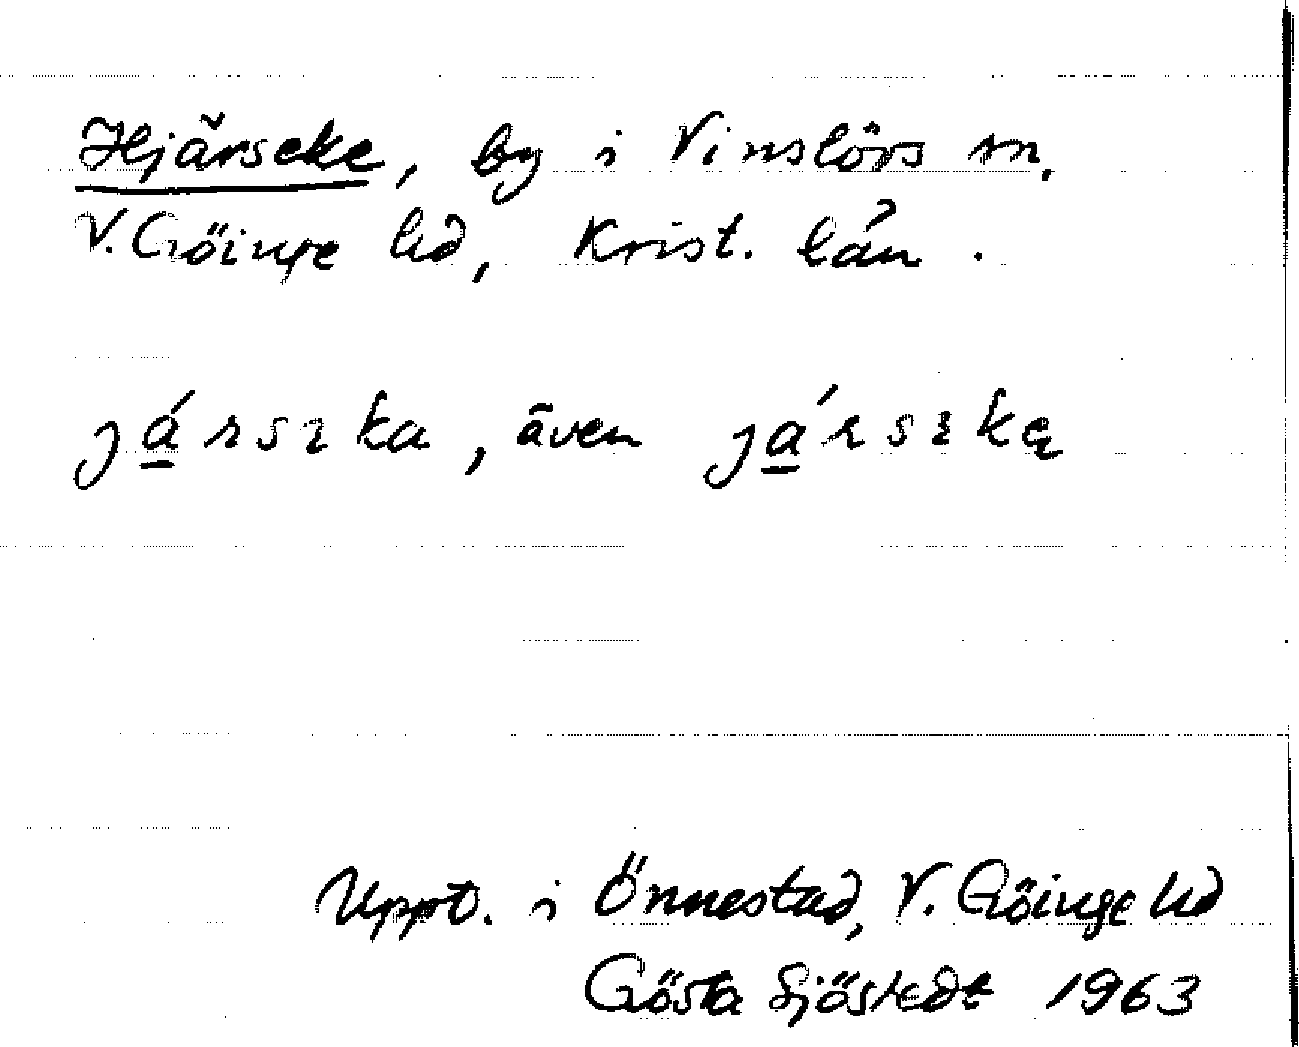 Hjärseke, by i Vinslövs sn,
V. Göinge hd, Krist. län.
já̱rsıka, även já̱rsıką
Uppt. i Önnestad, V. Göinge hd
Gösta Sjöstedt 1963